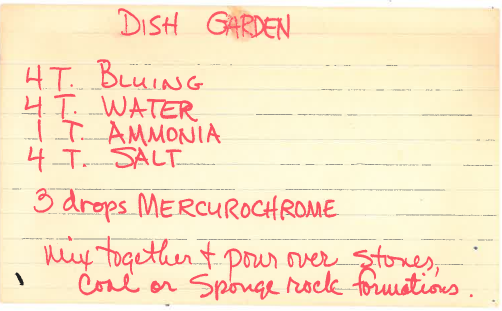 DISH GARDEN
4 T. BLUING
4 T. WATER
1 T. AMMONIA
4 T. SALT
3 drops MERCUROCHROME
Mix together + pour over stones,
Coal or Sponge rock formations.